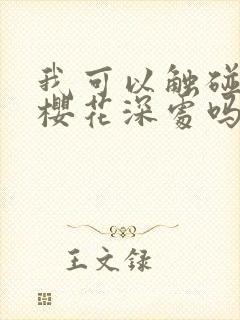 我可以触碰
樱花深处吗
王文录